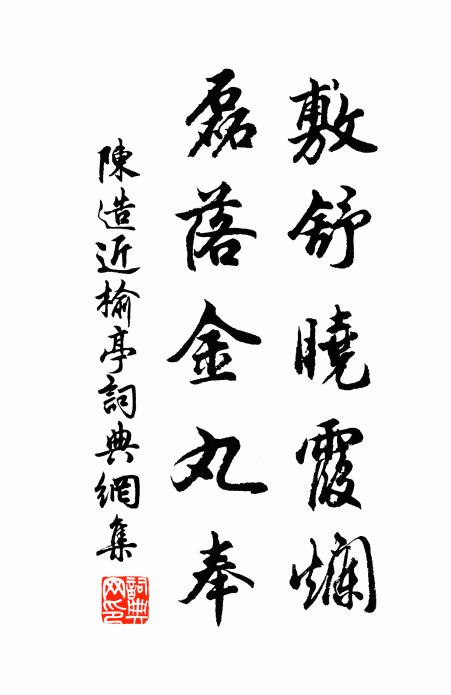 敷舒曉霞爛
磊落金丸奉
陳造近榆亭詞典網集
詞典網印